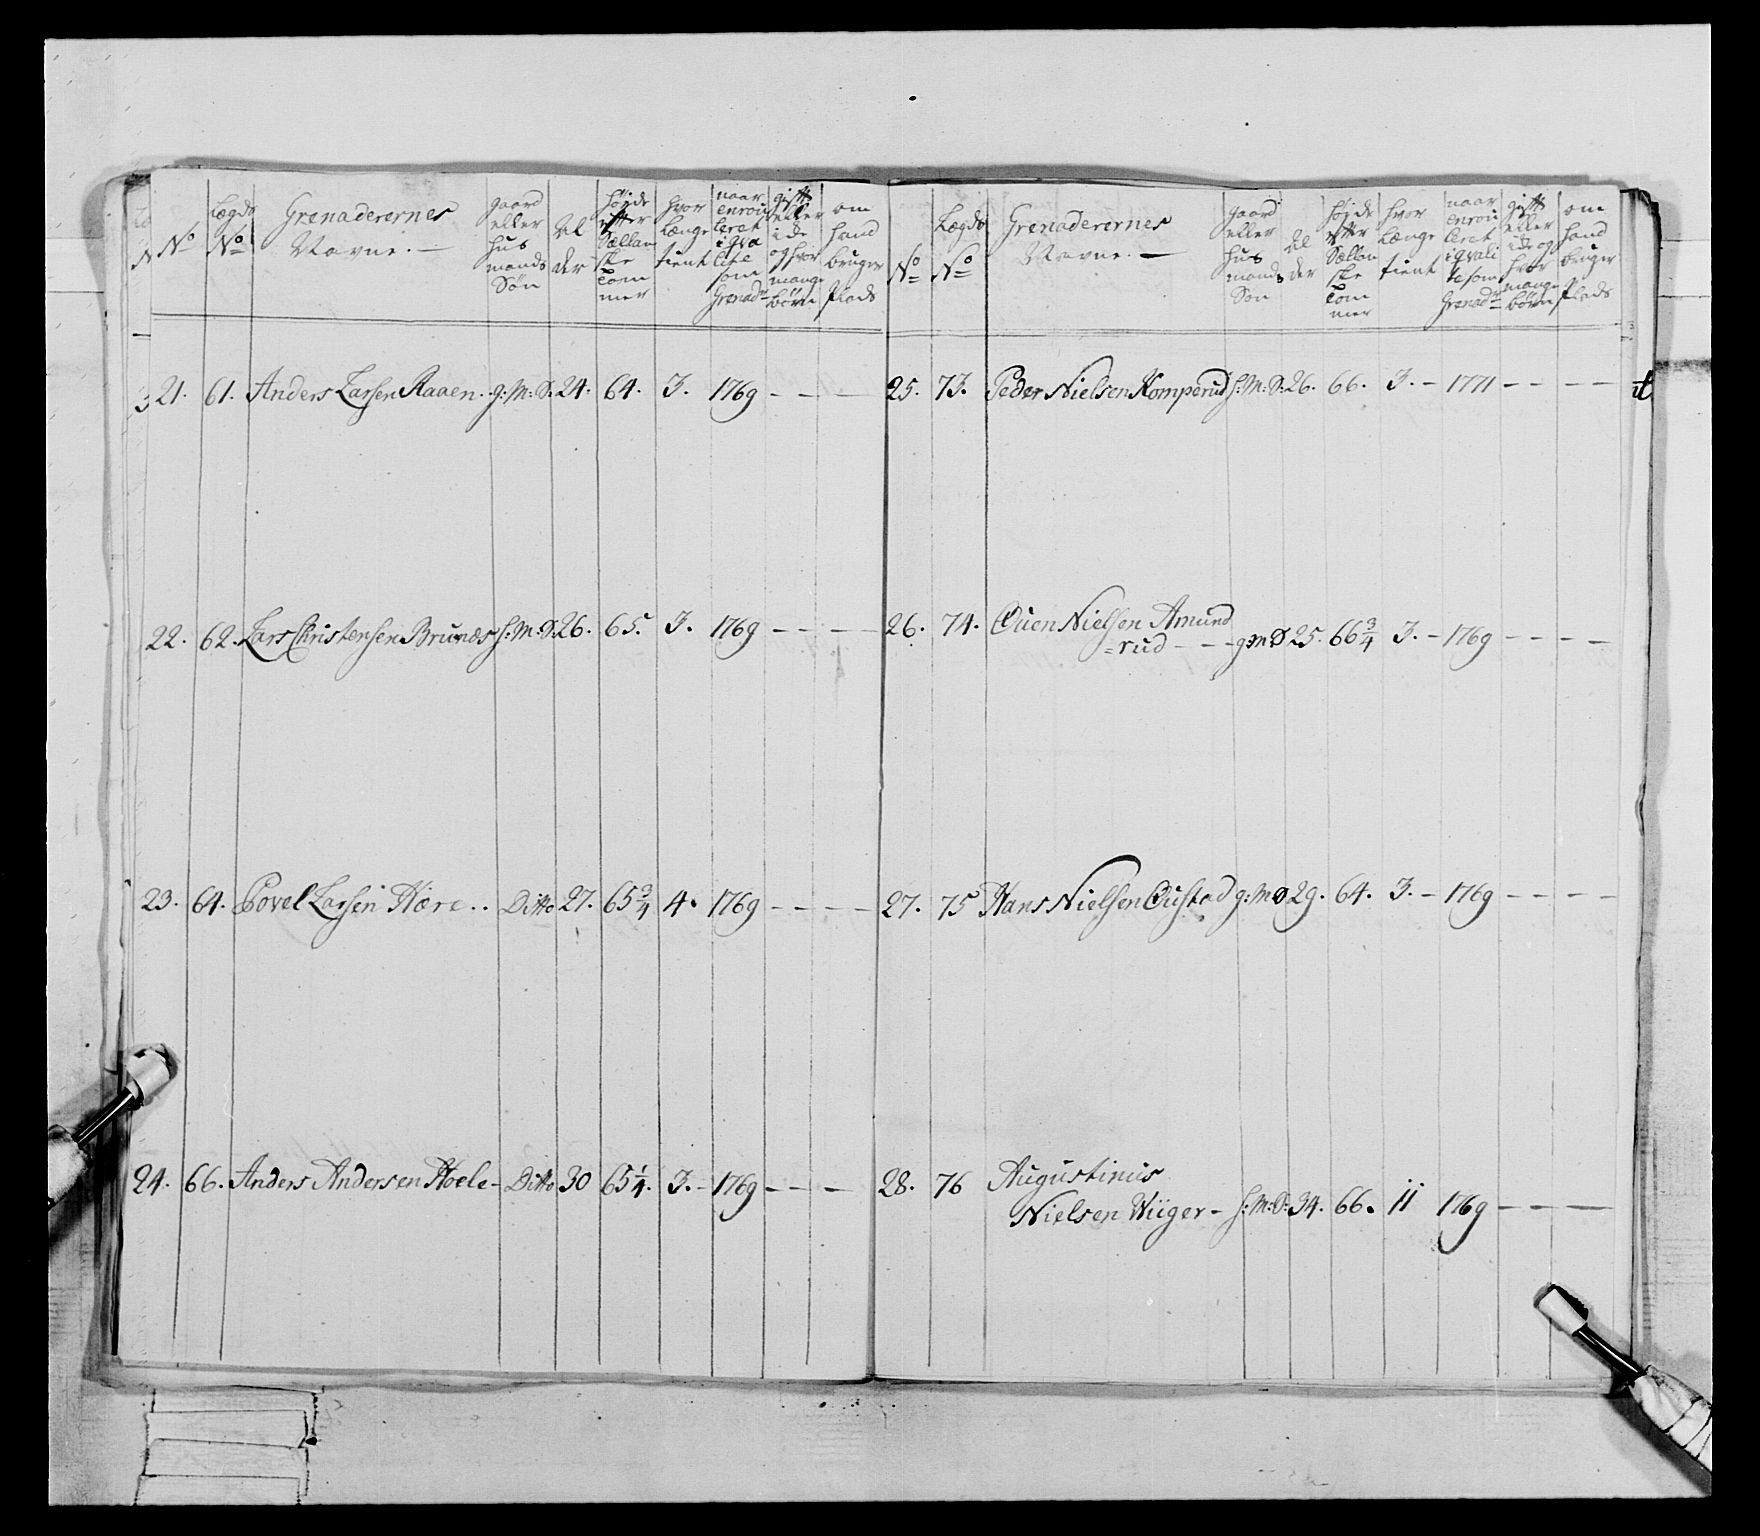 No
Lægds No
Grenaderernes Navne. —
gaard eller huus mands Søn
Al der
høyde efter Sællan ske Tom mer
hvor længe tient
naar enrou leret i qva lite som Grenadr
gift eller i de og hvor mange børn
om hand bruger Plads
21. 61. Anders Larsen Raaen. g: M: S: 24. 64. 3. 1769 — — —
22. 62. Lars Christensen Brunæs h: M: S: 26. 65. 3. 1769 — — —
23. 64. Povel Larsen Hære.. Ditto 27. 65 3/4 4. 1769 — — —
24. 66. Anders Andersen Hoele — Ditto 30 65 1/4. 3. — 1769 — — —
No
Lægds No
Grenaderernes Navne. —
gaard eller huus mands Søn
Al der
høyde efter Sællan ske Tom mer
hvor længe tient
naar enrou leret i qvali te som Grenadr
gift eller i de og hvor mange børn
om hand bruger Plads
25. 73. Peder Nielsen Komperud h: M: S: 26. 66. 3. — 1771 — — — —
26. 74. Ouen Nielsen Amund
=rud — — — g M S 25. 66 3/4 3. — 1769 — — — —
27. 75 Hans Nielsen Oustad g: M S 29. 64. 3. — 1769 — — — —
28. 76 Augustinus
Nielsen Wiiger — h: M: S: 34. 66. 11 1769 — — —